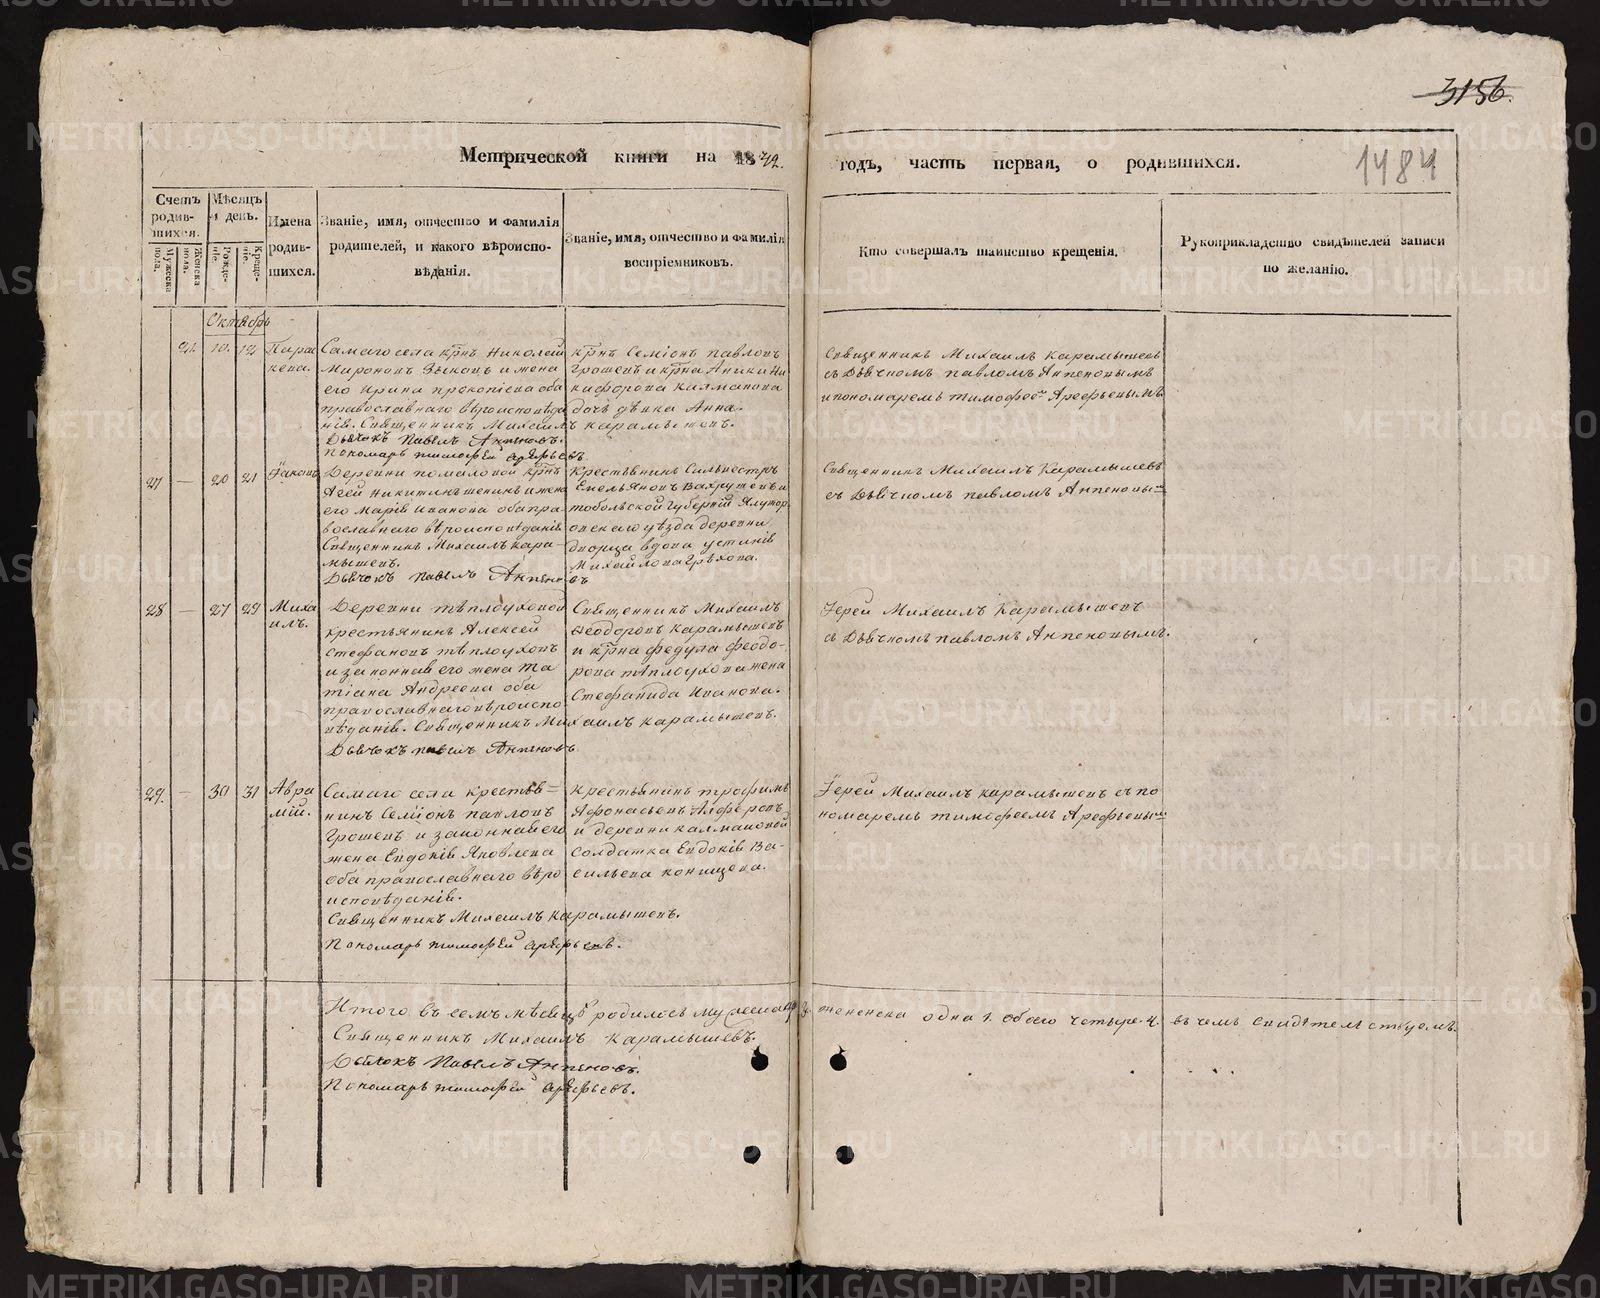 3156.
1484
Метрической книги на 1842. годъ, часть первая, о родившихся.
Счетъ родившихся.
Мужеска пола.
Женска пола.
Мѣсяцъ и день.
Рожденіе.
Крещеніе.
Имена родившихся.
Званіе, имя, отчество и фамилія родителей, и какого вѣроисповѣданія.
Званіе, имя, отчество и фамилія воспріемниковъ.
Кто совершалъ таинство крещенія.
Рукоприкладство свидѣтелей записи по желанію.
Октябрь
21. 10. 12 Параскева.
Самаго села крнъ Николай
Мироновъ Зыковъ и жена
его Ирина Прокопіева оба
православнаго вѣроисповѣда
нія. Священникъ Михаилъ Карамышевъ.
Дьячокъ Павелъ Анпеновъ.
Пономарь Тимофей Арефьевъ.
крнъ Семіонъ Павловъ
Грошевъ и крна Аники Ни
кифорова Калмакова
дочь дѣвка Анна.
Священникъ Михаилъ Карамышевъ
съ Дьячкомъ Павломъ Анпеновымъ
и пономаремъ Тимофее Арефьевымъ
27 — 20 21 Іаковъ
Деревни крнъ
Агей Никитинъ и жена
его Марія Иванова оба пра
вославнаго вѣроисповѣданія
Священникъ Михаилъ Кара
мышевъ.
Дьячокъ Павелъ Анпеновъ
Крестьянинъ Сильвестръ
Емельяновъ Вахрушевъ и
тобольской губерніи Ялутор
овскаго уѣзда деревни
вдова Устинія
Михайлова Грѣхова.
Священникъ Михаилъ Карамышевъ
съ Дьячкомъ Павломъ Анпеновы
28 — 27 29 Михаилъ.
Деревни Тѣплоуховой
крестьянинъ Алексей
Стефановъ Тѣплоуховъ
и законная его жена Та
тіана Андреева оба
православнаго вѣроиспо
вѣданія. Священникъ Михаилъ Карамышевъ.
Дьячокъ Павелъ Анпеновъ
Священникъ Михаилъ
Ѳеодоровъ Карамышевъ
и крна Федула Феодо
рова Тѣплоухова жена
Стефанида Иванова.
Іерей Михаилъ Карамышевъ
съ Дьячкомъ Павломъ Анпеновымъ.
29. — 30 31 Аврамій.
Самаго села крестья=
нинъ Семіонъ Павловъ
Грошевъ и законная его
жена Евдокія Яковлева
оба православнаго вѣро
исповѣданія.
Священникъ Михаилъ Карамышевъ.
Пономарь Тимофей Арефьевъ.
Крестьянинъ Трофимъ
Афонасьевъ Алферовъ
и деревни Калмаковой
солдатка Евдокія Ва-
сильева Конищева.
Іерей Михаилъ Карамышевъ съ по
номаремъ Тимофеемъ Арефьевы
Итого въ семъ мѣсяцѣ родилось мужеска 3. женска одна 1. обоего четыре 4. въ чемъ свидѣтельствуемъ.
Священникъ Михаилъ Карамышевъ.
Дьячокъ Павелъ Анпеновъ.
Пономарь Тимофей Арефьевъ.
METRIKI.GASO-URAL.RU